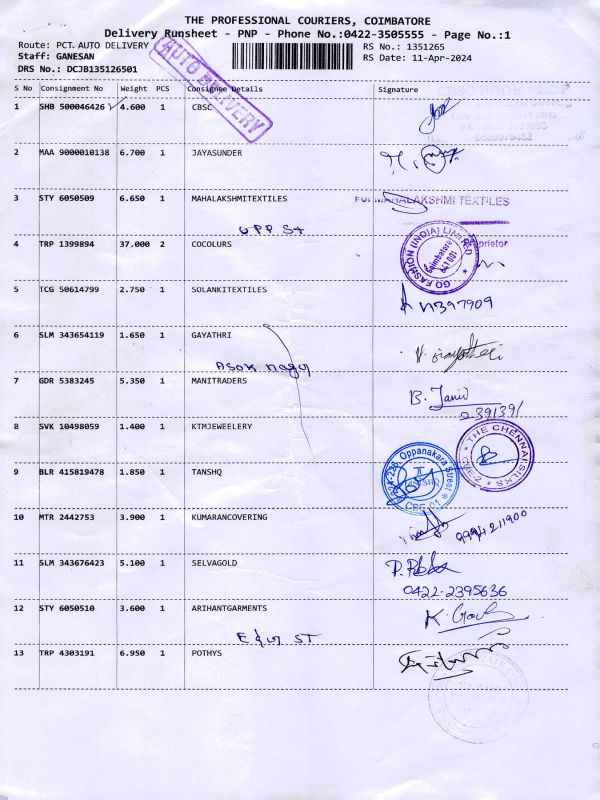 THE PROFESSIONAL COURIERS, COIMBATORE
Delivery Runsheet - PNP - Phone No.:0422-3505555 - Page No.:1
Route: PCT AUTO DELIVERY
RS No.: 1351265
Staff: GANESAN
RS Date: 11-Apr-2024
DRS No.: DCJB135126501
AUTO DELIVERY
S No Consignment No Weight PCS Consignee Details Signature
1 SHB 500046426 4.600 1 CBSC
2 MAA 9000010138 6.700 1 JAYASUNDER
3 STY 6050509 6.650 1 MAHALAKSHMITEXTILES
MAHALAKSHMI TEXTILES
OPP St
4 TRP 1399894 37.000 2 COCOLURS
GO FASHION (INDIA) LIMITED
Coimbatore
641 001
5 TCG 50614799 2.750 1 SOLANKITEXTILES
6 SLM 343654119 1.650 1 GAYATHRI
Asok nagar
7 GDR 5383245 5.350 1 MANITRADERS
2391391
8 SVK 10498059 1.400 1 KTMJEWEELERY
THE CHENNAI SILKS
9 BLR 415819478 1.850 1 TANSHQ
Oppanakara Street
CBE-01
10 MTR 2442753 3.900 1 KUMARANCOVERING
9994211900
11 SLM 343676423 5.100 1 SELVAGOLD
0422-2395636
12 STY 6050510 3.600 1 ARIHANTGARMENTS
ST
13 TRP 4303191 6.950 1 POTHYS